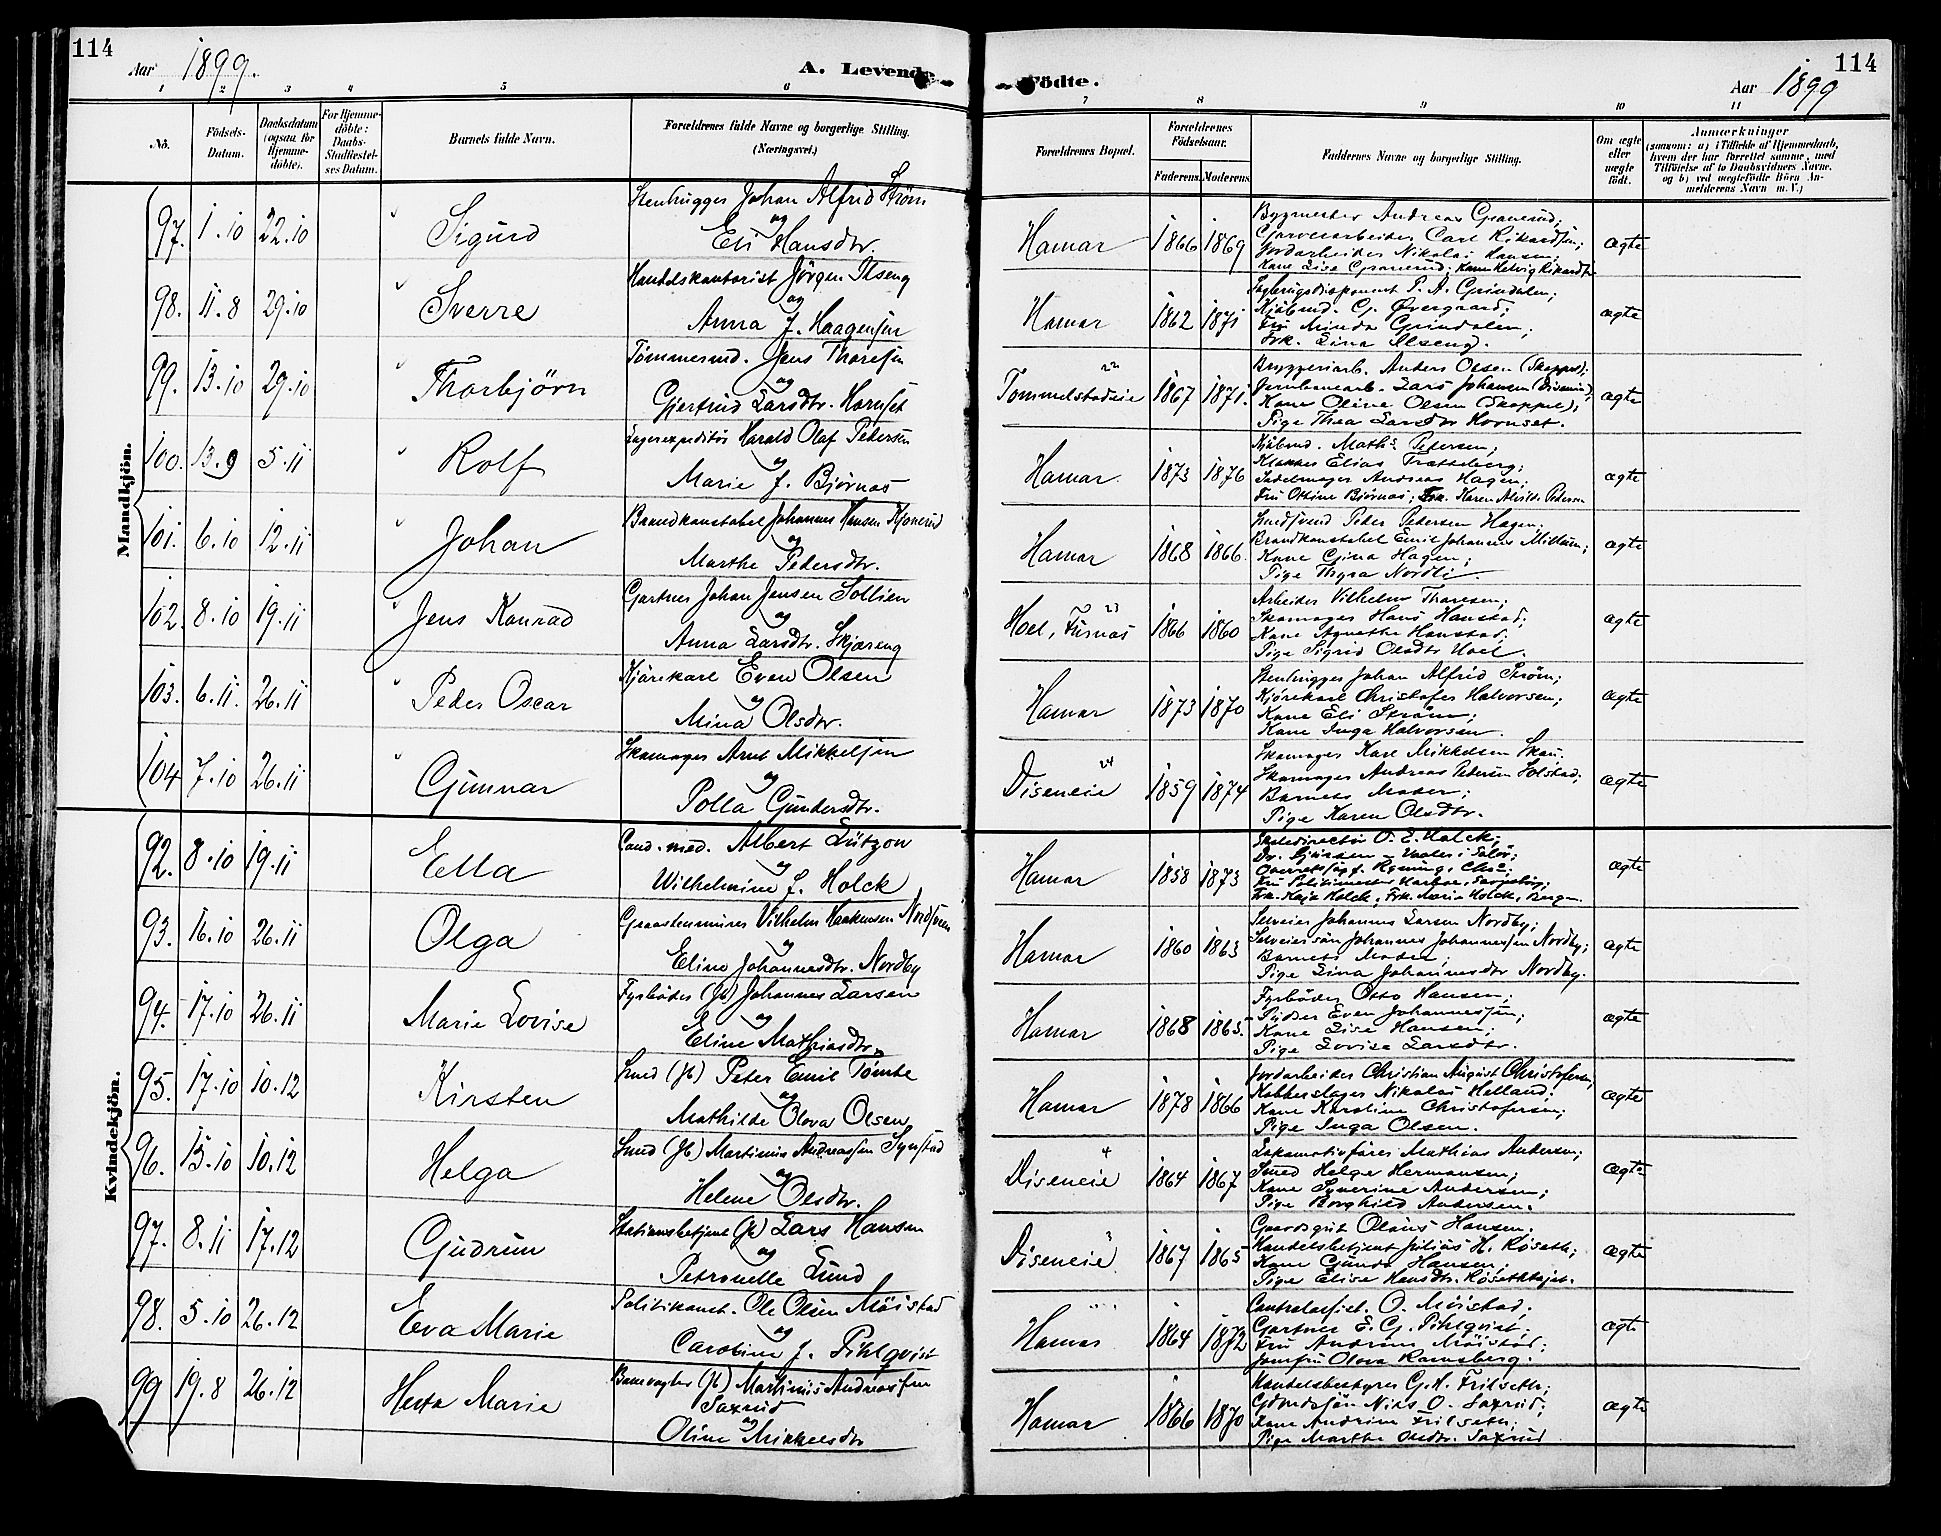 114
Aar 1899.
A. Levende
Födte.
Aar 1899
114
1 2 3 4 5 6 7 8 9 10 11
No.
Födsels-Datum.
Daabsdatum (ogsaa for Hjemme-döbte).
For Hjemme-döbte: Daabs-Stadfæstel-ses Datum.
Barnets fulde Navn.
Forældrenes fulde Navne og borgerlige Stilling. (Næringsvei.)
Forældrenes Bopæl.
Forældrenes Födselsaar.
Faderens. Moderens.
Faddernes Navne og borgerlige Stilling.
Om ægte eller uægte födt.
Anmærkninger
(saasom: a) i Tilfælde af Hjemmedaab, hvem der har forrettet samme, med Tilföielse af to Daabsvidners Navne, og b) ved uægtefödte Börn An-melderens Navn m. V.)
Mandkjön.
97. 1.10 22.10 Sigurd
Stenhugger Johan Alfred Strøm
og
Eli Hansdtr.
Hamar 1866 1869
Bygmester Andreas Granerud;
Garverarbeider Carl Rikardsen;
Jordarbeider Nikolai Hansen;
Kone Lise Granerud; Kone Helvig Rikardsen
ægte
98. 11.8 29.10 Sverre
Handelskontorist Jörgen Ilseng
og
Anna J. Haagensen
Hamar 1862 1871
P. A. Grindalen;
Kjöbmd. G. Övergaard;
Fru Minda Grindalen;
Frk. Lina Ilseng.
ægte
99. 13.10 29.10 Thorbjörn
Tömmermd. Jens Thoresen
og
Gjertrud Larsdtr. Hornset
Tommelstadeie 22 1867 1871.
Bryggeriarb. Anders Olsen (Skappel);
Jernbanearb. Lars Johansen (Disenein);
Kone Oline Olsen (Skappel);
Pige Thea Larsdtr Hornset.
ægte
100. 13.9 5.11 Rolf
Lagerexpeditör Harald Olaf Pedersen
og
Marie J. Björnas
Hamar. 1873 1876
Kjöbmd. Maths. Petersen;
Klokker Elias Trætteberg;
Sadelmager Andreas Hagen;
Fru Othine Björnas; Frk. Karen Alvilde Pedersen
ægte
101. 6.10 12.11 Johan
Brandkonstabel Johannes Hansen Kjonerud
og
Marthe Pedersdtr.
Hamar 1868 1866.
Smedsvend Peder Petersen Hagen;
Brandkonstabel Emil Johannes Millum;
Kone Gina Hagen;
Pige Thyra Nordli.
ægte
102. 8.10 19.11 Jens Konrad
Gartner Johan Jensen Sollien
og
Anna Larsdtr. Skjæreng
Hoel, Furnæs 23 1866 1860
Arbeider Vilhelm Thoresen;
Skomager Hans Hanstad;
Kone Agnethe Hanstad;
Pige Sigrid Olsdtr Hoel.
ægte
103. 6.11. 26.11 Peder Oscar
Kjörekarl Even Olsen
og
Mina Olsdtr.
Hamar 1873 1870
Stenhugger Johan Alfred Ström;
Kjörekarl Christofer Halvorsen;
Kone Eli Ström;
Kone Inga Halvorsen.
ægte
104 7.10 26.11 Gunnar
Skomager Arnt Mikkelsen
og
Polla Gundersdtr.
Diseneie 24 1859 1874
Skomager Karl Mikkelsen Skau;
Skomager Andreas Petersen Solstad;
Barnets Moder;
Pige Karen Olsdtr.
ægte
Kvindekjön.
92. 8.10 19.11 Ella
Cand. med. Albert Lützow
og
Wilhelmine J. Holck
Hamar 1858 1873
Skoledirectör O. E. Holck;
Frk. Kaja Holck, Frk. Maria Holck, Bergen.
ægte
93. 16.10 26.11 Olga
Graastensmurer Vilhelm Haakensen Nordsveen
og
Eline Johannesdtr. Nordby
Hamar 1860 1863
Selveier Johannes Larsen Nordby;
Selveiersön Johannes Johannessen Nordby;
Barnets Moder;
Pige Lina Johannesdtr Nordby.
ægte
94. 17.10 26.11 Marie Lovise
Fyrböder (Jb) Johannes Larsen
og
Eline Mathiasdtr
Hamar 1868 1865.
Fyrböder Otto Hansen;
Pudser Even Johannessen;
Kone Lise Hansen;
Pige Lovise Larsdtr.
ægte
95. 17.10 10.12 Kirsten
Smed (Jb) Peter Emil Tømte
og
Mathilde Olova Olsen
Hamar 1878 1866
Jordarbeider Christian August Christofersen;
Kobberslager Nikolai Helland;
Kone Karoline Christofersen;
Pige Inga Olsen.
ægte
96. 15.10 10.12 Helga
Smed (Jb) Martinius Andreassen Synstad
og
Helene Olsdtr.
Diseneie 4 1864 1867
Lokomotivförer Mathias Andersen;
Smed Helge Hermansen;
Kone Synerine Andersen;
Pige Borghild Andersen.
ægte
97. 8.11 17.12 Gudrun
Stationsbetjent (Jb) Lars Hansen
og
Petronelle Lund
Diseneie 3 1867 1865
Gaardsgut Olaus Hansen;
Handelsbetjent Julius H. Röseth;
Kone Gunda Hansen;
Pige Elise Hansdtr. Rösethhöjet.
ægte
98. 5.10 26.12 Eva Marie
Politikonst. Ole Olsen Möistad
og
Caroline J. Pihlqvist
Hamar 1864 1872
O. Möistad;
Gartner E. G. Pihlqvist;
Fru Andrine Möistad;
Jomfru Olova Ramsberg.
ægte
99 19.8 26.12 Herta Marie
Banevogter (Jb) Martinius Andreassen
Saxrud
og
Oline Mikkelsdtr
Hamar 1866 1870
Handelsbestyrer G. A. Frilseth;
Gdmdssön Nils O. Saxrud;
Kone Andrine Frilseth;
Pige Marthe Olsdtr. Saxrud
ægte